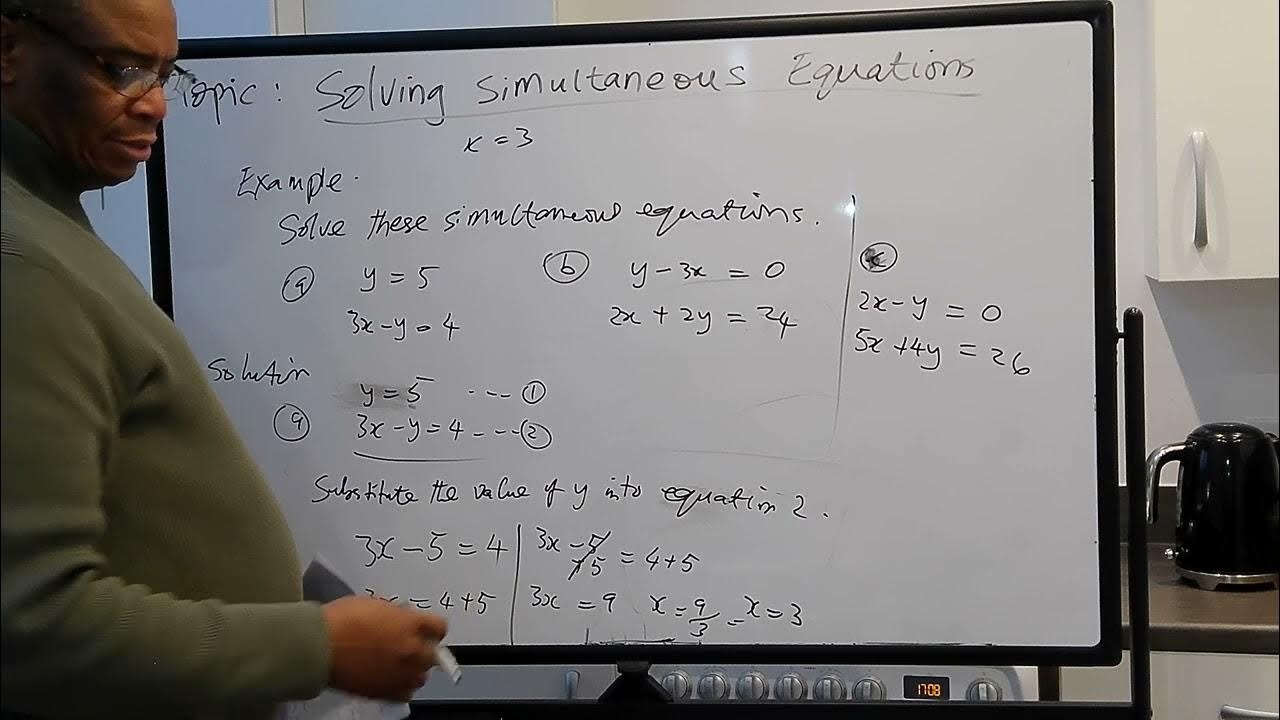 Topic: Solving Simultaneous Equations
x = 3
Example.
Solve these simultaneous equations.
ⓐ y = 5
3x - y = 4
ⓑ y - 3x = 0
2x + 2y = 24
ⓒ
2x - y = 0
5x + 4y = 26
Solution
ⓐ y = 5 --- ①
3x - y = 4 --- ②
Substitute the value of y into equation 2.
3x - 5 = 4
3x = 4 + 5
3x - 5 = 4 + 5
+5
3x = 9 x = 9/3 = x = 3
17:08